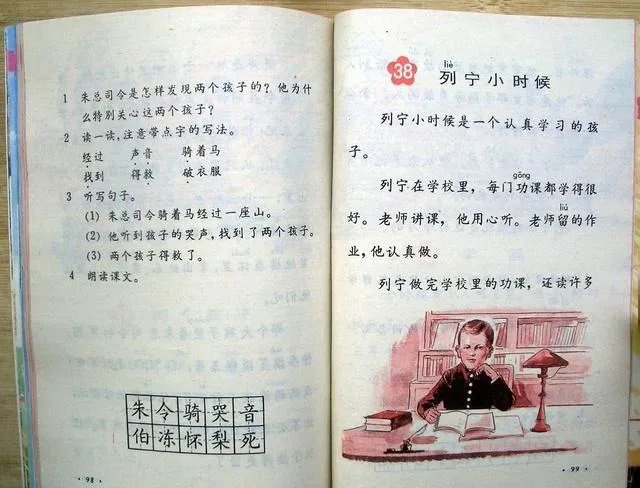 1 朱总司令是怎样发现两个孩子的？他为什
么特别关心这两个孩子？
2 读一读，注意带点字的写法。
经过 声音 骑着马
找到 得救 破衣服
3 听写句子。
(1) 朱总司令骑着马经过一座山。
(2) 他听到孩子的哭声，找到了两个孩子。
(3) 两个孩子得救了。
4 朗读课文。
朱令骑哭音
伯冻怀梨死
·98·
38
liè
列宁小时候
列宁小时候是一个认真学习的孩
子。
gōng
列宁在学校里，每门功课都学得很
liú
好。老师讲课，他用心听。老师留的作
业，他认真做。
列宁做完学校里的功课，还读许多
·99·